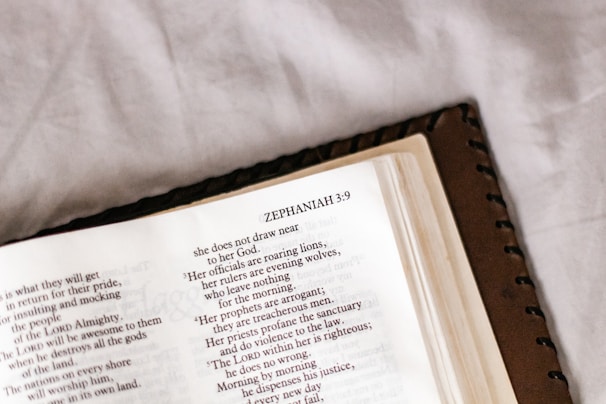 ZEPHANIAH 3:9
is what they will get
in return for their pride,
for insulting and mocking
the people
of the LORD Almighty.
The LORD will be awesome to them
when he destroys all the gods
of the land.
The nations on every shore
will worship him,
one in its own land.
she does not draw near
to her God.
³Her officials are roaring lions,
her rulers are evening wolves,
who leave nothing
for the morning.
⁴Her prophets are arrogant;
they are treacherous men.
Her priests profane the sanctuary
and do violence to the law.
⁵The LORD within her is righteous;
he does no wrong.
Morning by morning
he dispenses his justice,
every new day
not fail,